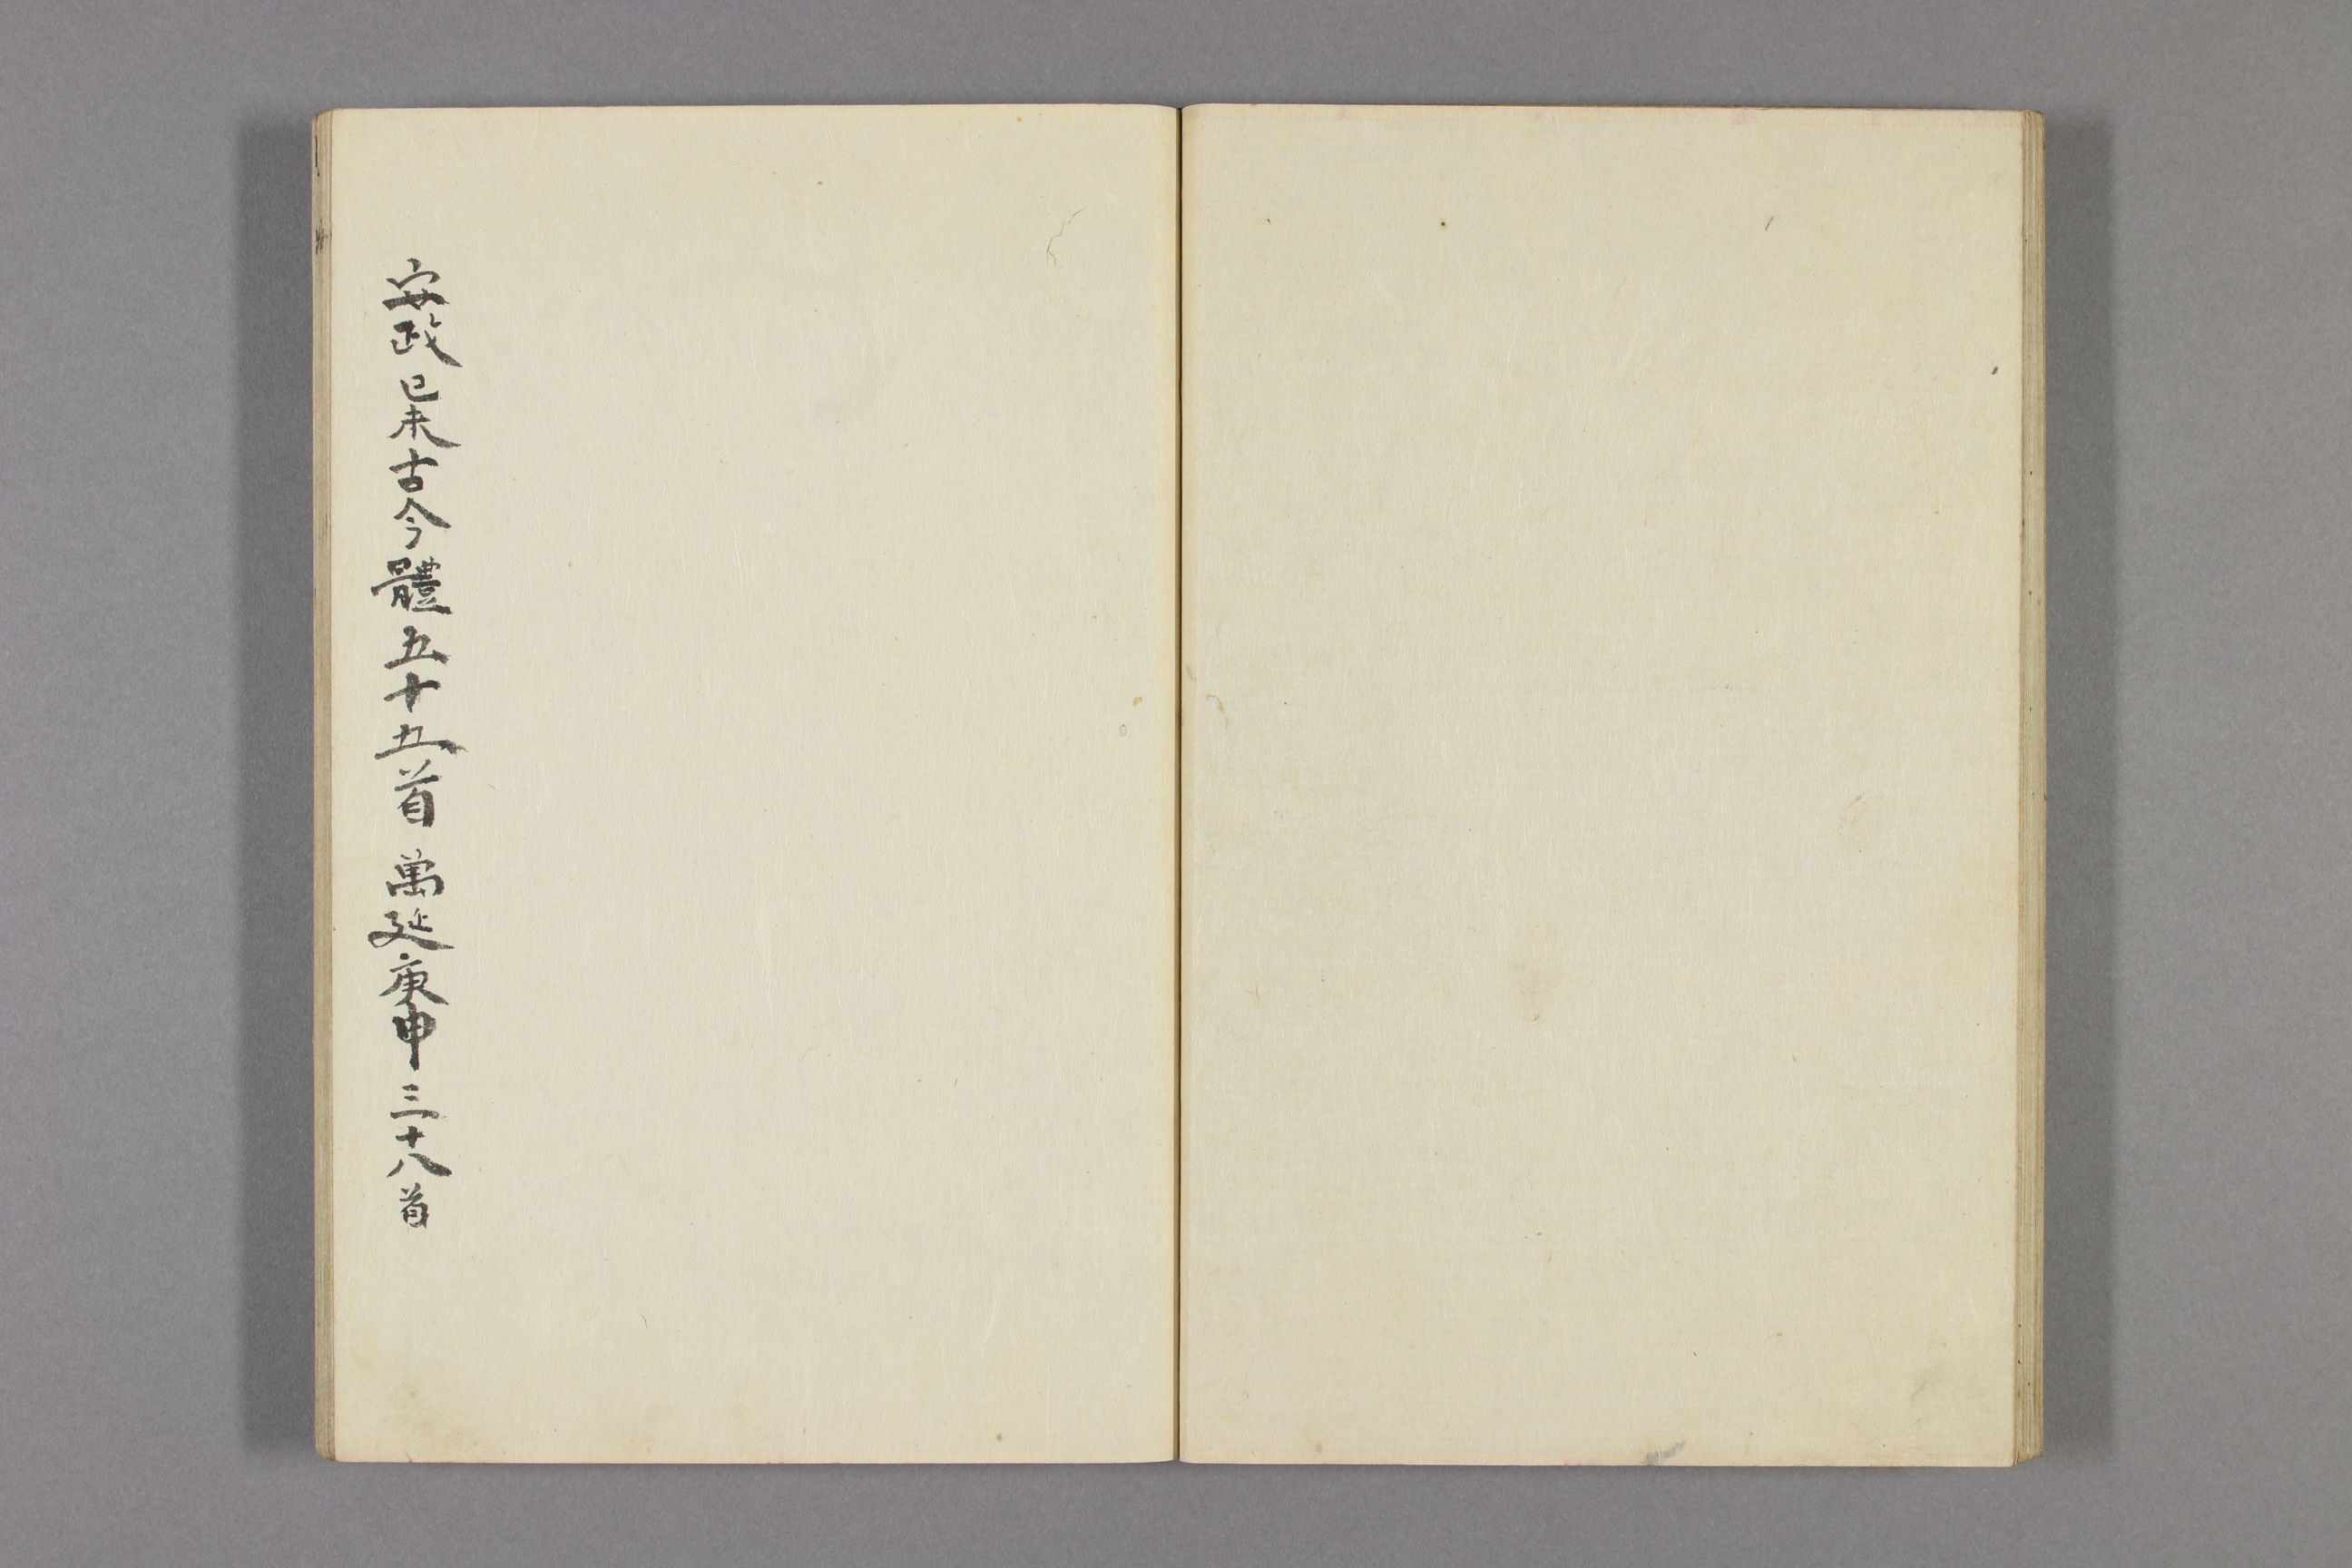 安政己未古今體五十五首 萬延庚申三十八首